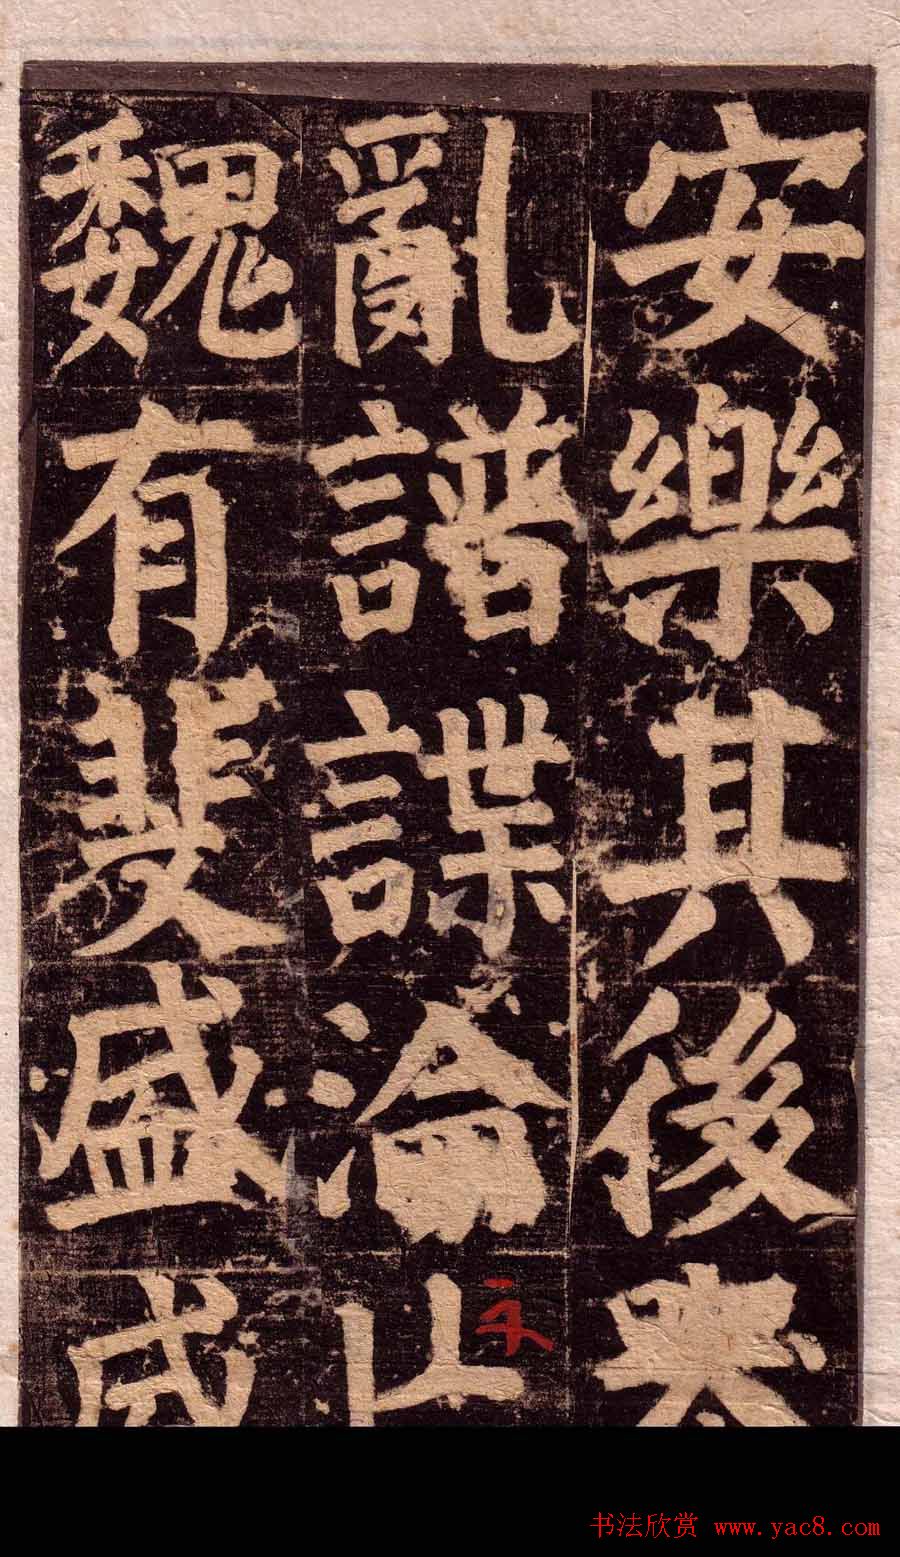 安樂其後
亂譜諜淪
魏有斐盛
书法欣赏 www.yac8.com